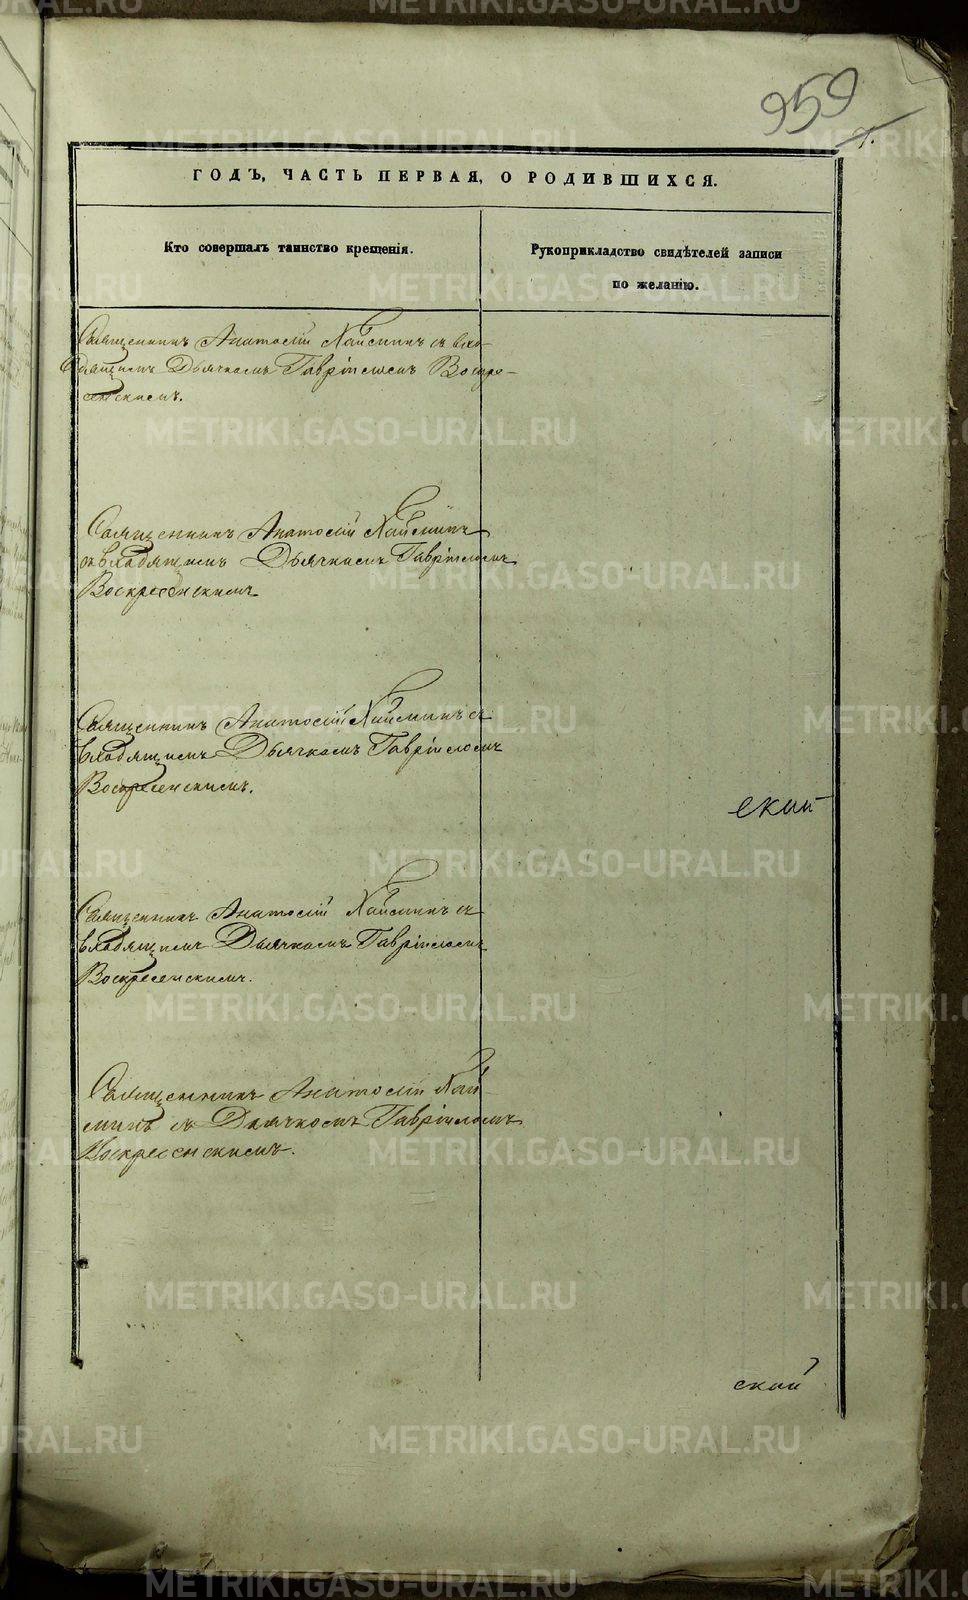 959
ГОДЪ, ЧАСТЬ ПЕРВАЯ, О РОДИВШИХСЯ.
Кто совершалъ таинство крещенія.
Рукоприкладство свидѣтелей записи
по желанію.
Священникъ Анатолій Хайминъ съ вхо-
дящимъ Дьячкомъ Гавріиломъ Воскре-
сенскимъ.
Священникъ Анатолій Хайминъ
съ входящимъ Дьячкомъ Гавріиломъ
Воскресенскимъ
Священникъ Анатолій Хайминъ съ
входящимъ Дьячкомъ Гавріиломъ
Воскресенскимъ.
ский
Священникъ Анатолій Хайминъ съ
входящимъ Дьячкомъ Гавріиломъ
Воскресенскимъ.
Священникъ Анатолій Хай-
минъ съ Дьячкомъ Гавріиломъ
Воскресенскимъ.
ский
METRIKI.GASO-URAL.RU